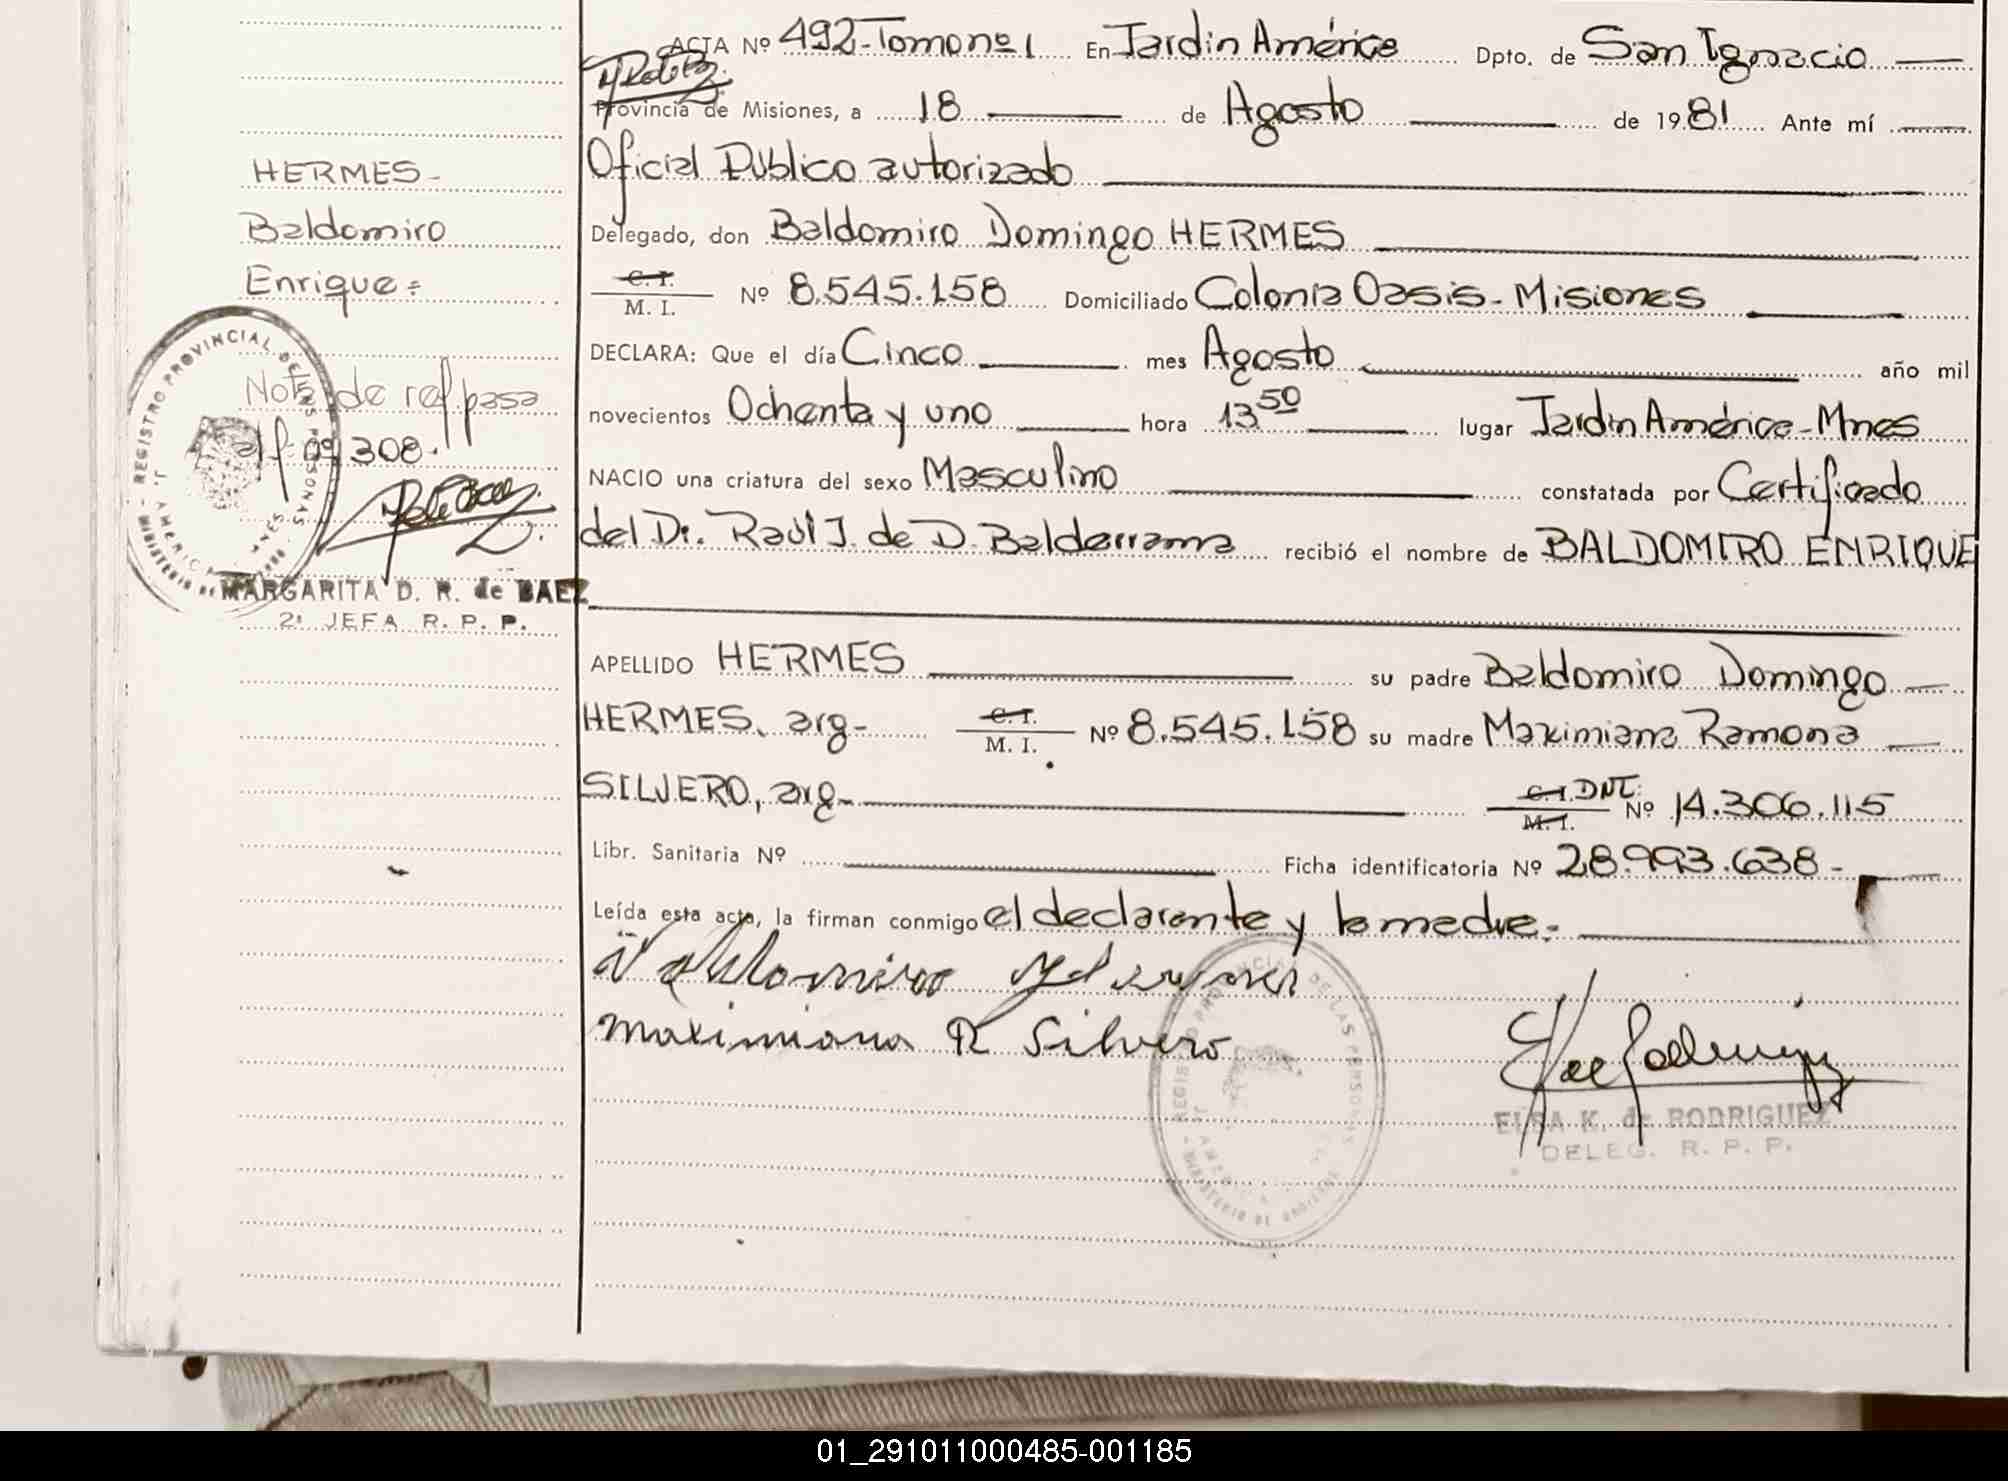 ACTA Nº 492-Tomo nº 1 En Jardin América Dpto. de San Ignacio
Provincia de Misiones, a 18 de Agosto de 1981 Ante mí
Oficial Público autorizado
Delegado, don Baldomiro Domingo HERMES
C. I. M. I. Nº 8.545.158 Domiciliado Colonia Oasis - Misiones
DECLARA: Que el día Cinco mes Agosto año mil
novecientos Ochenta y uno hora 13 50 lugar Jardin América - Mnes
NACIO una criatura del sexo Masculino constatada por Certificado
del Dr. Raúl J. de D. Balderrama recibió el nombre de BALDOMIRO ENRIQUE
APELLIDO HERMES su padre Baldomiro Domingo
HERMES, arg- C. I. M. I. Nº 8.545.158 su madre Maximiana Ramona
SILVERO, arg- C. I. DNI. M. I. Nº 14.306.115
Libr. Sanitaria Nº Ficha identificatoria Nº 28.993.638-
Leída esta acta, la firman conmigo el declarante y la madre.-
Maximiana R Silvero
ELSA K. de RODRIGUEZ
DELEG. R. P. P.
REGISTRO PROVINCIAL DE LAS PERSONAS
HERMES-
Baldomiro
Enrique=
REGISTRO PROVINCIAL DE LAS PERSONAS
Nota de ref pasa
al f- 09 308.
MARGARITA D. R. de BAEZ
2ª JEFA R. P. P.
01_291011000485-001185